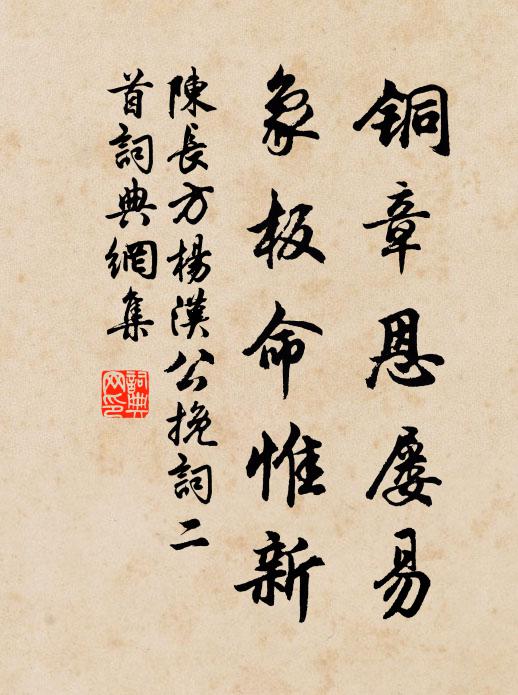 铜章恩屡易
象板命惟新
陳長方楊漢公挽詞二
首詞典網集
詞典
网印